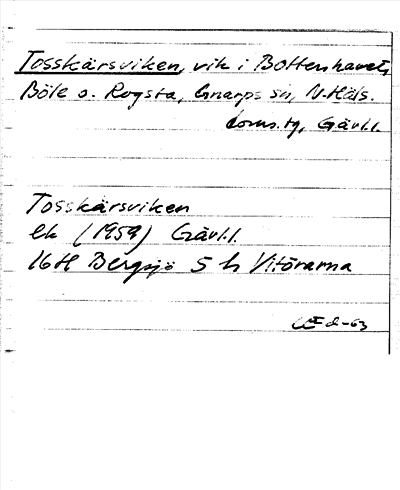 Tosskärsviken, vik i Bottenhavet,
Böle o. Rogsta, Gnarps sn, N. Häls.
doms.tg, Gävl.l.
Tosskärsviken
ek (1959) Gävl.l.
16H Bergsjö 5 h Vitörarna